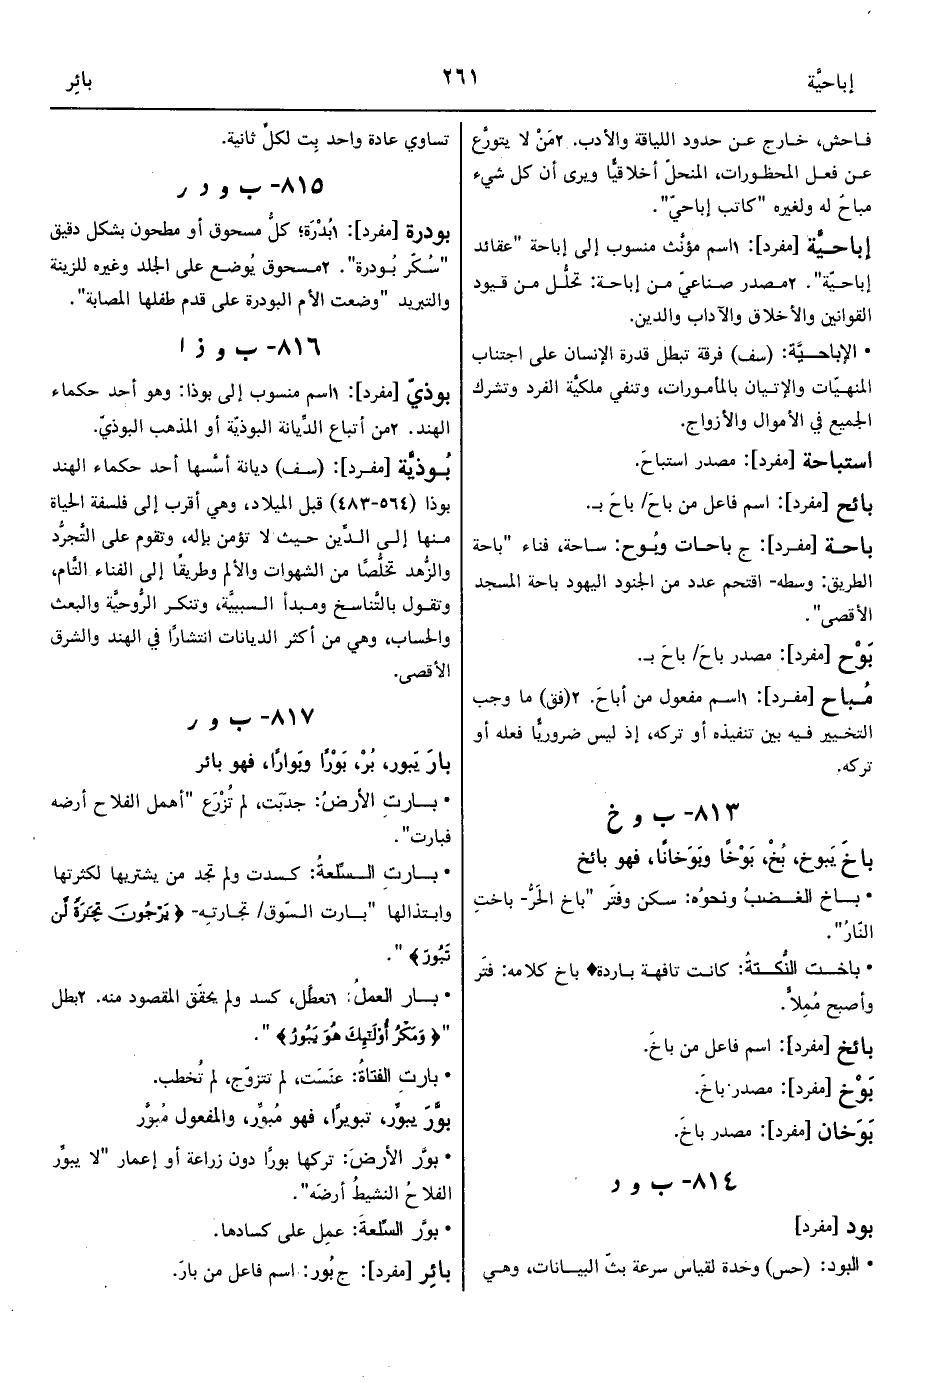 إباحيَّة
٢٦١
بائِر
فاحش، خارج عن حدود اللياقة والأدب. ٢مَنْ لا يتورَّع
عن فعل المحظورات، المنحلّ أخلاقيًّا ويرى أن كل شيء
مباحٌ له ولغيره "كاتب إباحيّ".
إباحيَّة [مفرد]: ١اسم مؤنَّث منسوب إلى إباحة "عقائد
إباحيّة". ٢مصدر صناعيّ من إباحة: تحلُّل من قيود
القوانين والأخلاق والآداب والدين.
• الإباحيَّة: (سف) فرقة تبطل قدرة الإنسان على اجتناب
المنهيّات والإتيان بالمأمورات، وتنفي ملكيَّة الفرد وتشرك
الجميع في الأموال والأزواج.
استباحة [مفرد]: مصدر استباحَ.
بائح [مفرد]: اسم فاعل من باحَ/ باحَ بـ.
باحة [مفرد]: ج باحات وبُوح: ساحة، فناء "باحة
الطريق: وسطه- اقتحم عدد من الجنود اليهود باحة المسجد
الأقصى".
بَوْح [مفرد]: مصدر باحَ/ باحَ بـ.
مُباح [مفرد]: ١اسم مفعول من أباحَ. ٢(فق) ما وجب
التخيير فيه بين تنفيذه أو تركه، إذ ليس ضروريًّا فعله أو
تركه.
٨١٣- ب و خ
باخَ يَبوخ، بُخْ، بَوْخًا وبَوَخانًا، فهو بائخ
• باخ الغضبُ ونحوُه: سكن وفتَر "باخ الحَرُّ- باختِ
النّارُ".
• باخت النُّكتةُ: كانت تافهة باردة♦ باخ كلامه: فتَر
وأصبح مُمِلاًّ.
بائخ [مفرد]: اسم فاعل من باخَ.
بَوْخ [مفرد]: مصدر باخَ.
بَوَخان [مفرد]: مصدر باخَ.
٨١٤- ب و د
بود [مفرد]
• البود: (حس) وحْدة لقياس سرعة بثّ البيانات، وهي
تساوي عادة واحد بِت لكلّ ثانية.
٨١٥- ب و د ر
بودرة [مفرد]: ١بُدْرَة؛ كلُّ مسحوق أو مطحون بشكل دقيق
"سُكّر بُودرة". ٢مسحوق يُوضع على الجلد وغيره للزينة
والتبريد "وضعت الأم البودرة على قدم طفلها المصابة".
٨١٦- ب و ذ ا
بوذيّ [مفرد]: ١اسم منسوب إلى بوذا: وهو أحد حكماء
الهند. ٢من أتباع الدِّيانة البوذيّة أو المذهب البوذيّ.
بُوذيَّة [مفرد]: (سف) ديانة أسَّسها أحد حكماء الهند
بوذا (٥٦٤-٤٨٣) قبل الميلاد، وهي أقرب إلى فلسفة الحياة
منها إلى الدِّين حيث لا تؤمن بإله، وتقوم على التَّجرُّد
والزُّهد تخلُّصًا من الشهوات والألم وطريقًا إلى الفناء التَّام،
وتقول بالتَّناسخ ومبدأ السببيَّة، وتنكر الرُّوحيَّة والبعث
والحساب، وهي من أكثر الديانات انتشارًا في الهند والشرق
الأقصى.
٨١٧- ب و ر
بارَ يَبور، بُرْ، بَوْرًا وبَوارًا، فهو بائر
• بارتِ الأرضُ: جدَبَت، لم تُزْرَع "أهمل الفلاح أرضه
فبارت".
• بارتِ السِّلعةُ: كسدت ولم تجد من يشتريها لكثرتها
وابتذالها "بارت السّوق/ تجارته- ﴿ يَرْجُونَ تِجَرَةً لَّن
تَبُورَ ﴾ ".
• بار العملُ: ١تعطَّل، كسد ولم يحقّق المقصود منه. ٢بطل
"﴿ وَمَكْرُ أُوْلَٰٓئِكَ هُوَ يَبُورُ ﴾ ".
• بارتِ الفتاةُ: عنَسَت، لم تتزوّج، لم تُخطب.
بوَّرَ يبوِّر، تبويرًا، فهو مُبوِّر، والمفعول مُبوَّر
• بوَّر الأرضَ: تركها بورًا دون زراعة أو إعمار "لا يبوِّر
الفلاحُ النشيطُ أرضَه".
• بوَّر السِّلعةَ: عمِل على كسادها.
بائِر [مفرد]: ج بُور: اسم فاعل من بارَ.